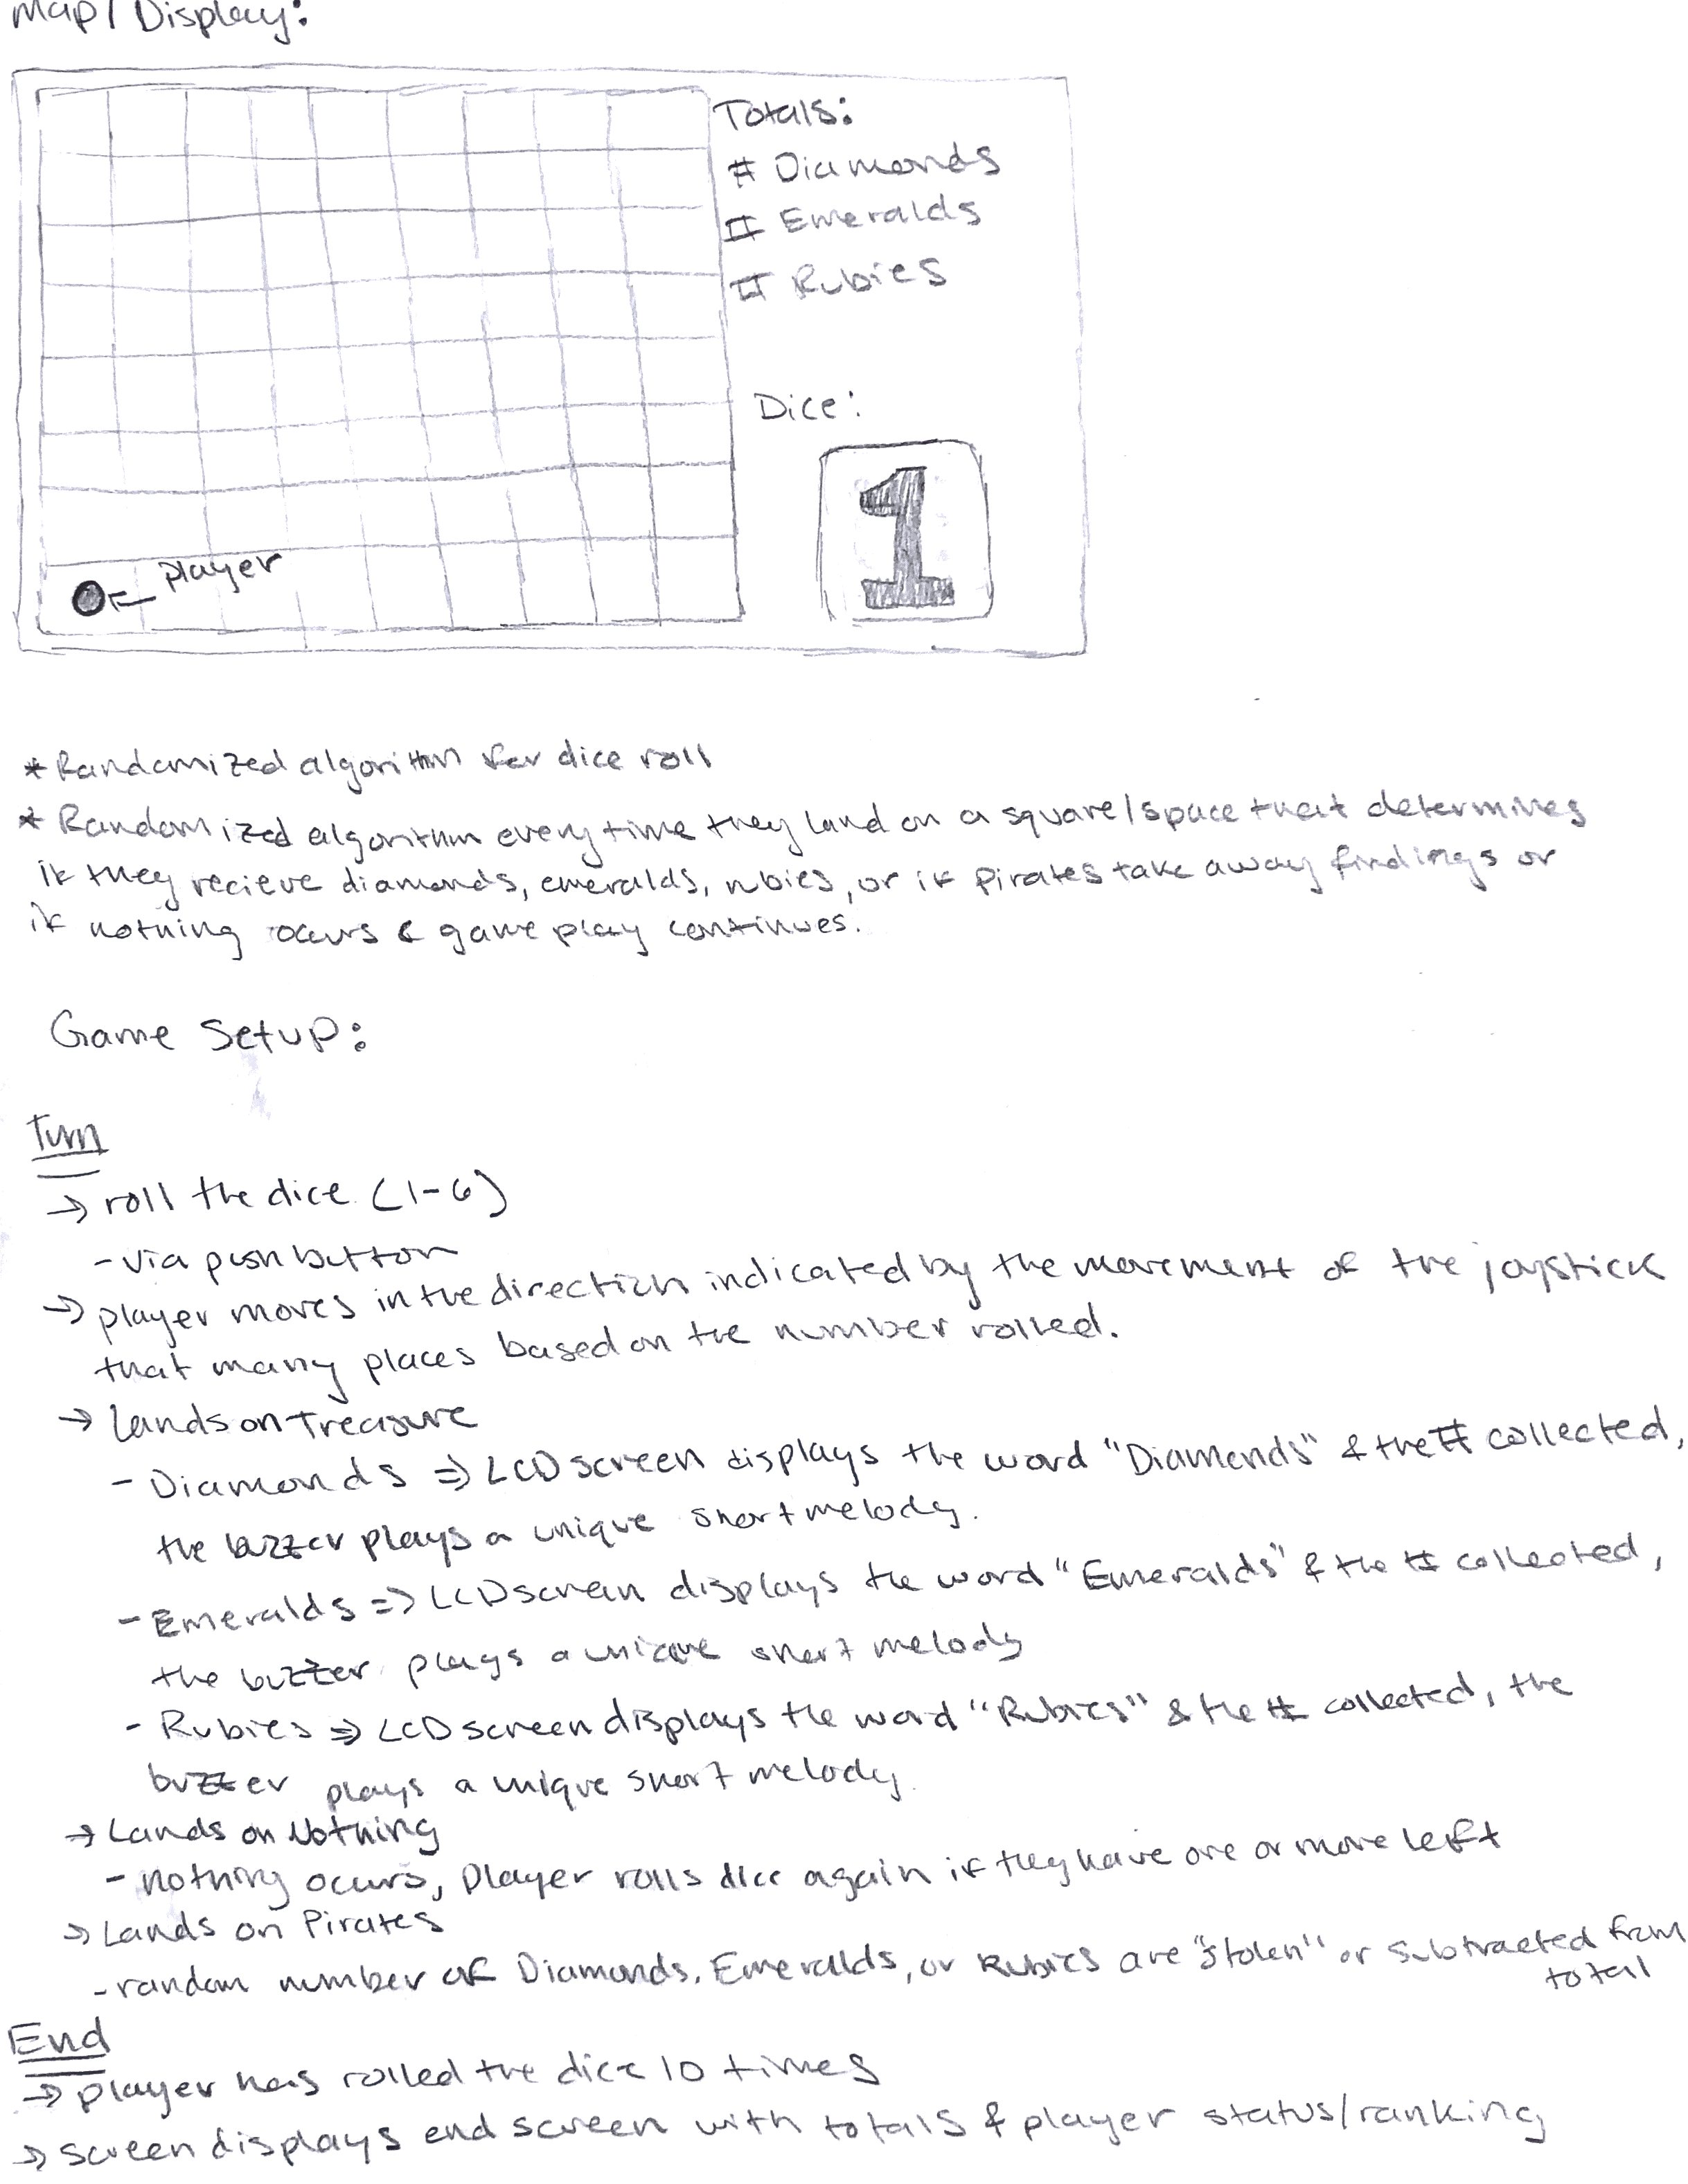 Map/Display:
Totals:
# Diamonds
# Emeralds
# Rubies
Dice:
1
player
* Randomized algorithm for dice roll
* Randomized algorithm every time they land on a square/space that determines
if they recieve diamonds, emeralds, rubies, or if pirates take away findings or
if nothing occurs & game play continues.
Game Setup:
Turn
→ roll the dice (1-6)
- via push button
→ player moves in the direction indicated by the movement of the joystick
that many places based on the number rolled.
→ Lands on Treasure
- Diamonds ⇒ LCD screen displays the word "Diamonds" & the # collected,
the buzzer plays a unique short melody.
- Emeralds ⇒ LCD screen displays the word "Emeralds" & the # collected,
the buzzer plays a unique short melody
- Rubies ⇒ LCD screen displays the word "Rubies" & the # collected, the
buzzer plays a unique short melody.
→ Lands on Nothing
- nothing occurs, player rolls dice again if they have one or more left
→ Lands on Pirates
- random number of Diamonds, Emeralds, or Rubies are "stolen" or subtracted from
total
End
→ player has rolled the dice 10 times
→ screen displays end screen with totals & player status/ranking